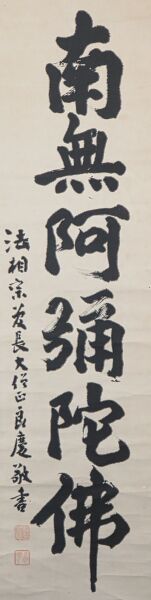 南無阿彌陀佛
法相宗管長大僧正良慶敬書